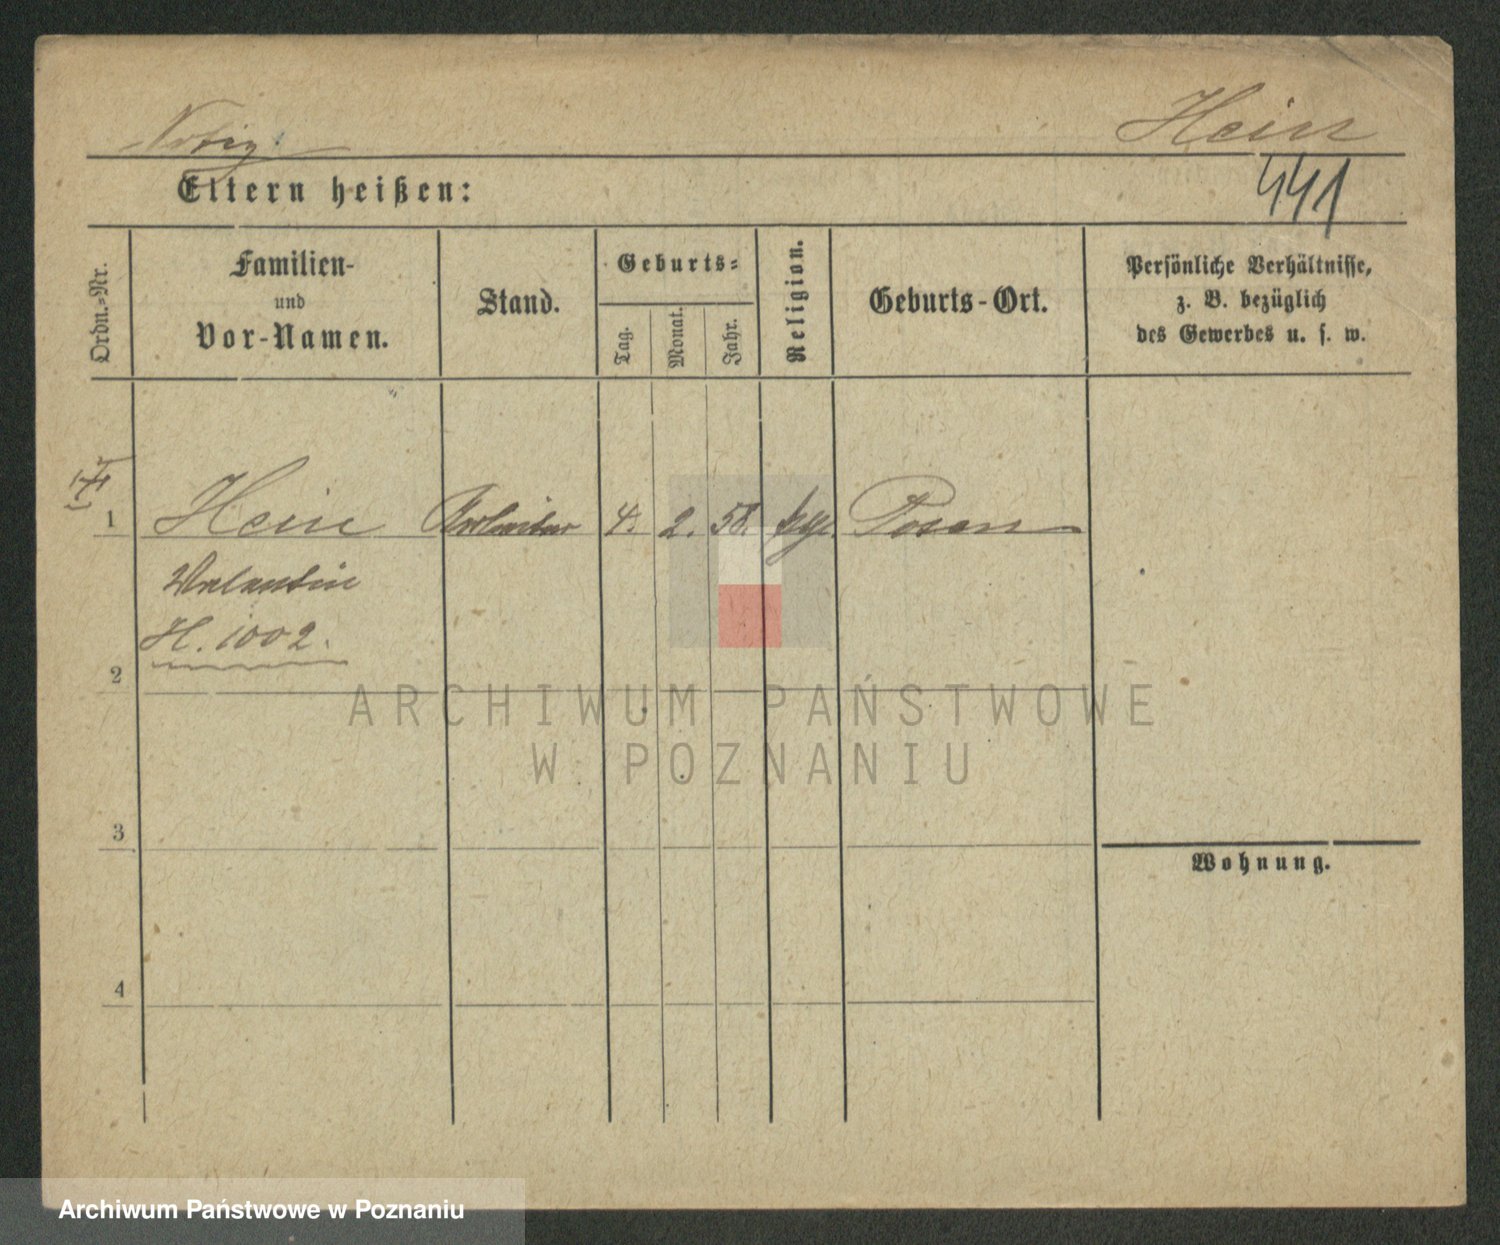 Notiz. Hein
Eltern heißen:
441
Ordn.-Nr.
Familien-
und
Vor-Namen.
Stand.
Geburts-
Tag.
Monat.
Jahr.
Religion.
Geburts-Ort.
Persönliche Verhältnisse,
z. B. bezüglich
des Gewerbes u. s. w.
1 Hein Arbeiter 4. 2. 58. Posen
Valentin
H. 1002.
2
3
4
Wohnung.
ARCHIWUM PAŃSTWOWE
W POZNANIU
Archiwum Państwowe w Poznaniu